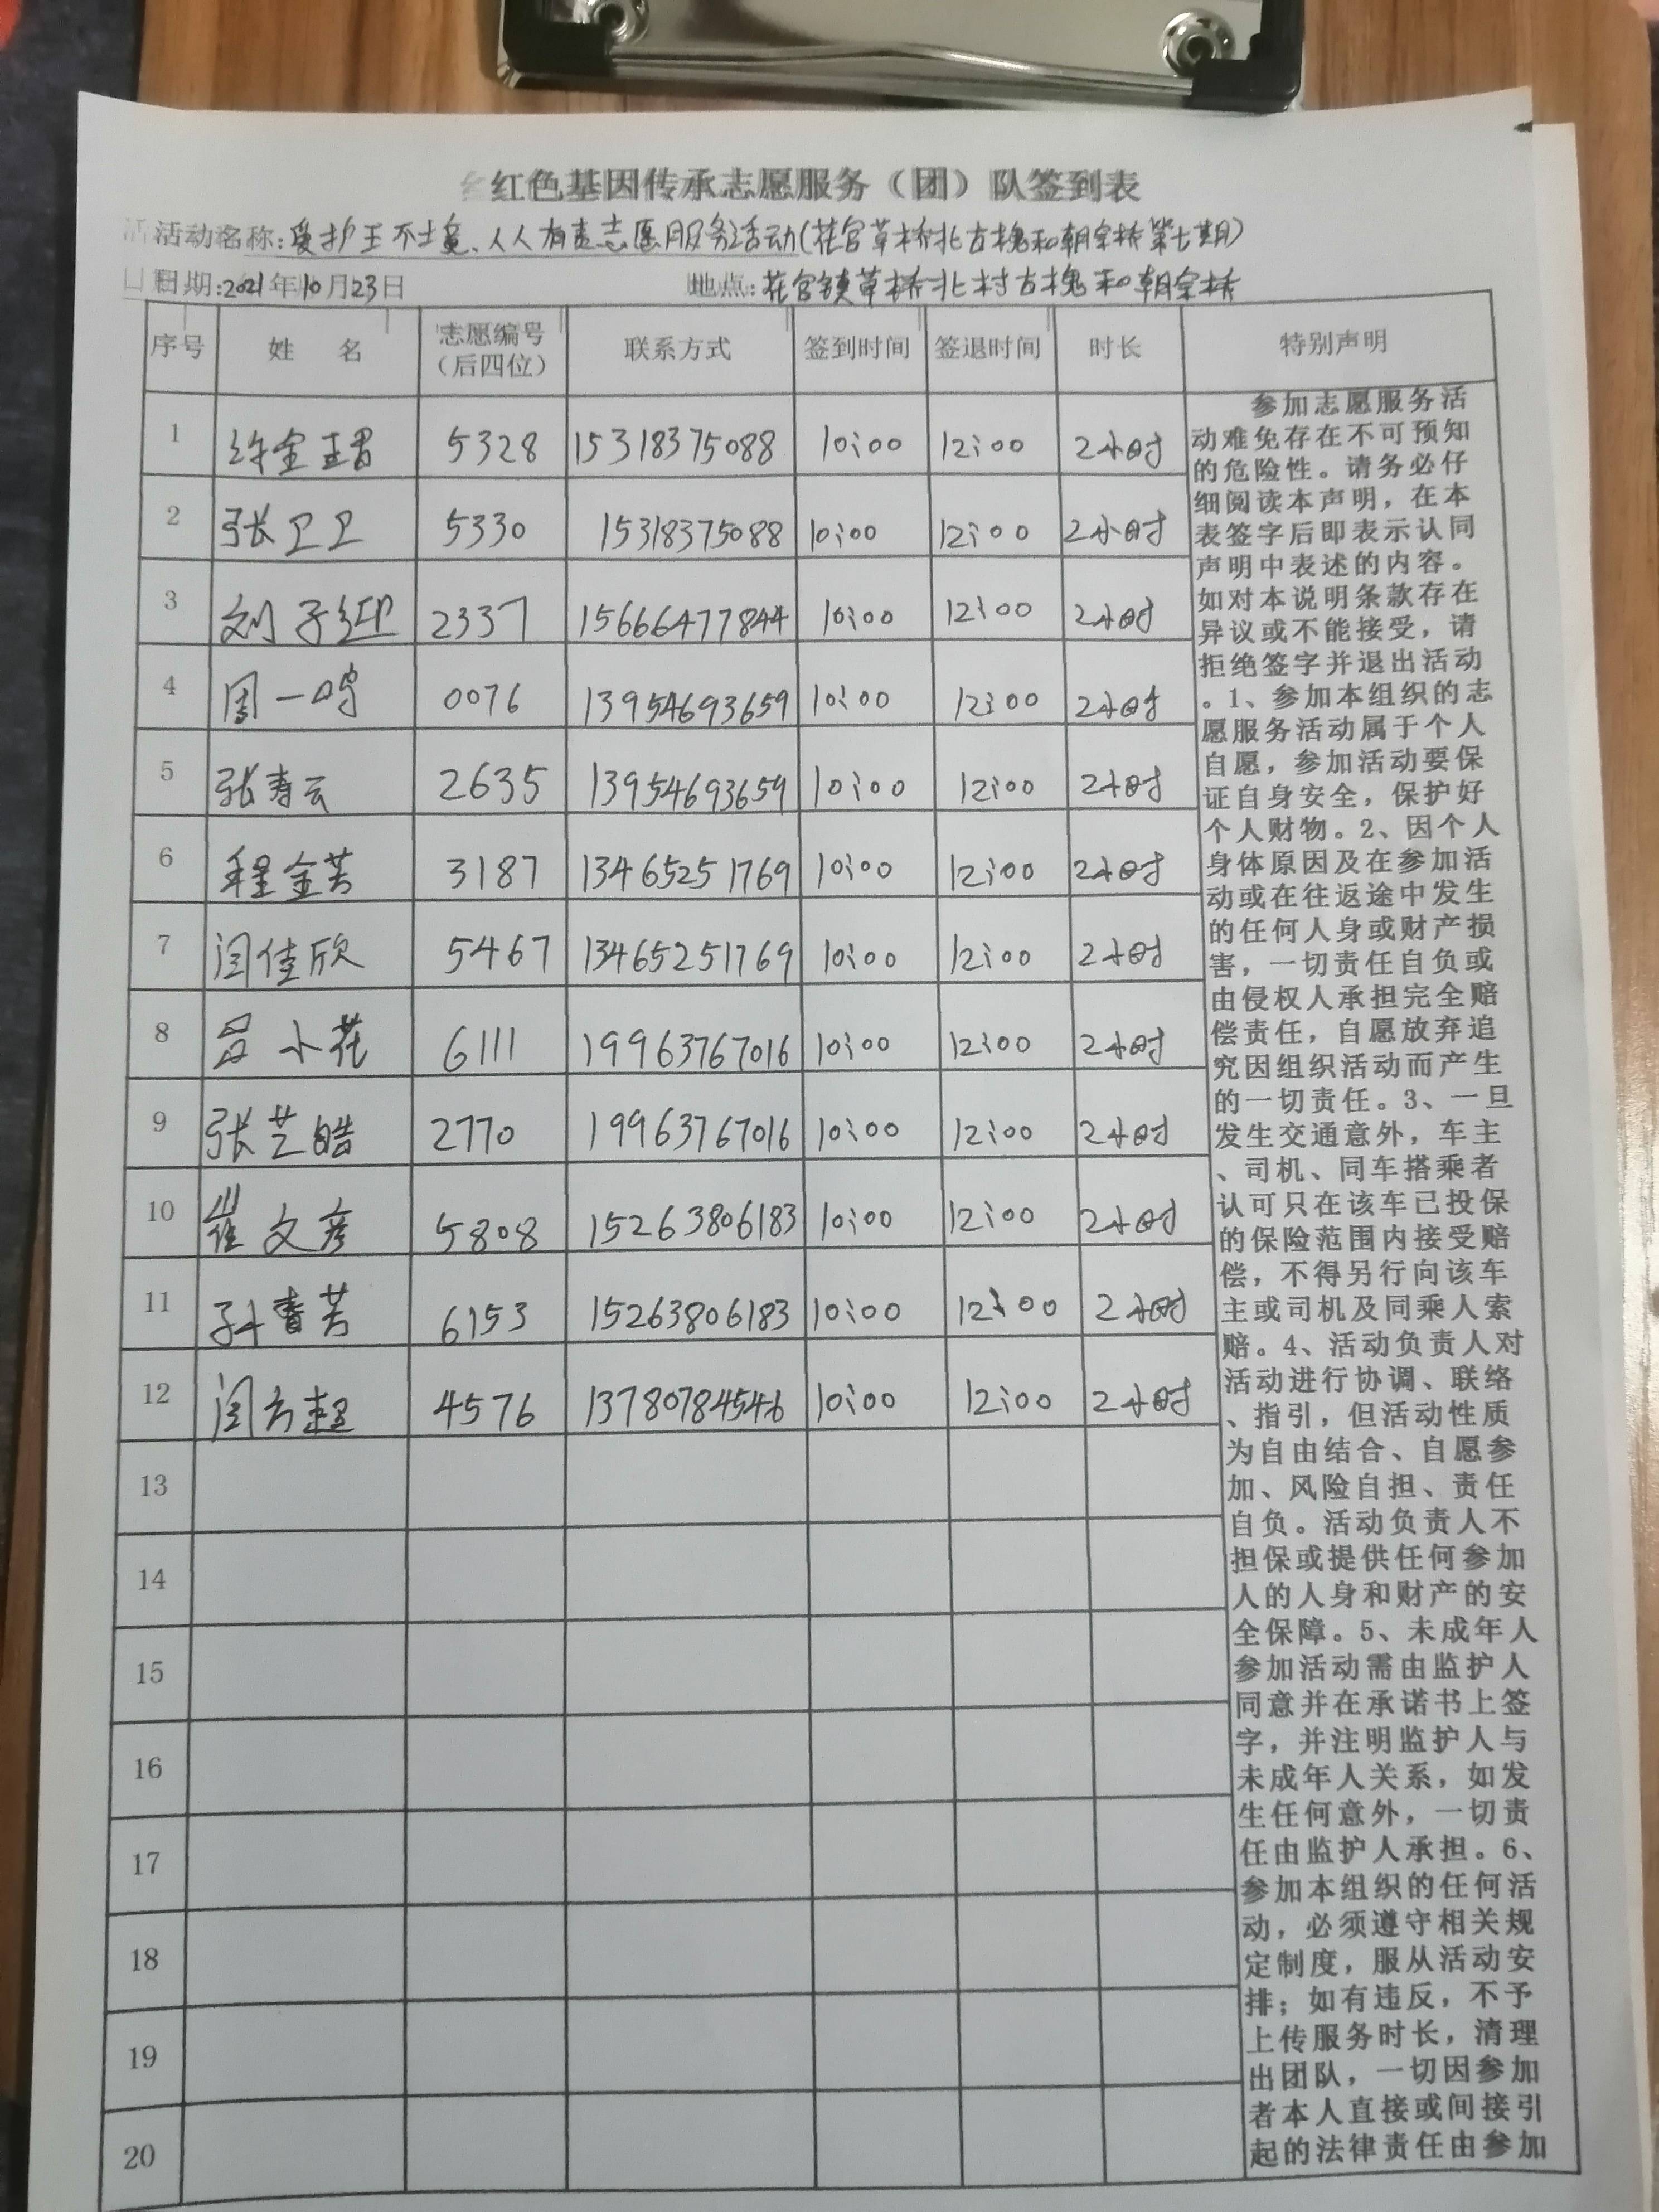 红色基因传承志愿服务（团）队签到表
活动名称:爱护王不境、人人有责志愿服务活动(花官草桥北古槐和朝宗桥第七期)
日期:2021年10月23日 地点:花官镇草桥北村古槐和朝宗桥
序号 姓 名 志愿编号（后四位） 联系方式 签到时间 签退时间 时长 特别声明
1 许金 5328 15318375088 10:00 12:00 2小时
2 张卫卫 5330 15318375088 10:00 12:00 2小时
3 刘子 2337 15666477844 10:00 12:00 2小时
4 周一鸣 0076 13954693659 10:00 12:00 2小时
5 张寿云 2635 13954693659 10:00 12:00 2小时
6 程金芳 3187 13465251769 10:00 12:00 2小时
7 闫佳欣 5467 13465251769 10:00 12:00 2小时
8 吕小花 6111 19963767016 10:00 12:00 2小时
9 张艺皓 2770 19963767016 10:00 12:00 2小时
10 崔文彦 5808 15263806183 10:00 12:00 2小时
11 孙春芳 6153 15263806183 10:00 12:00 2小时
12 闫方超 4576 13780784546 10:00 12:00 2小时
13
14
15
16
17
18
19
20
参加志愿服务活
动难免存在不可预知
的危险性。请务必仔
细阅读本声明，在本
表签字后即表示认同
声明中表述的内容。
如对本说明条款存在
异议或不能接受，请
拒绝签字并退出活动
。1、参加本组织的志
愿服务活动属于个人
自愿，参加活动要保
证自身安全，保护好
个人财物。2、因个人
身体原因及在参加活
动或在往返途中发生
的任何人身或财产损
害，一切责任自负或
由侵权人承担完全赔
偿责任，自愿放弃追
究因组织活动而产生
的一切责任。3、一旦
发生交通意外，车主
、司机、同车搭乘者
认可只在该车已投保
的保险范围内接受赔
偿，不得另行向该车
主或司机及同乘人索
赔。4、活动负责人对
活动进行协调、联络
、指引，但活动性质
为自由结合、自愿参
加、风险自担、责任
自负。活动负责人不
担保或提供任何参加
人的人身和财产的安
全保障。5、未成年人
参加活动需由监护人
同意并在承诺书上签
字，并注明监护人与
未成年人关系，如发
生任何意外，一切责
任由监护人承担。6、
参加本组织的任何活
动，必须遵守相关规
定制度，服从活动安
排；如有违反，不予
上传服务时长，清理
出团队，一切因参加
者本人直接或间接引
起的法律责任由参加